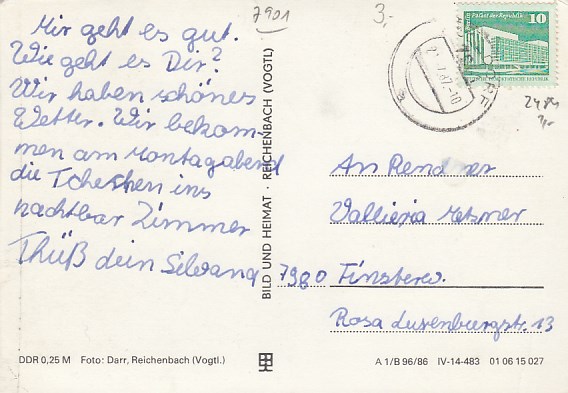 7901
3,-
Mir geht es gut.
Wie geht es Dir?
Wir haben schönes
Wetter. Wir bekom-
men am Montagabend
die Tchechen ins
nachtbar Zimmer
Thüß dein Silvana
BILD UND HEIMAT · REICHENBACH (VOGTL)
Palast der Republik 10
2484
An
Vallieria
7980 Finsterw.
Rosa Luxenburgstr. 13
DDR 0,25 M Foto: Darr, Reichenbach (Vogtl.)
A 1/B 96/86 IV-14-483 01 06 15 027